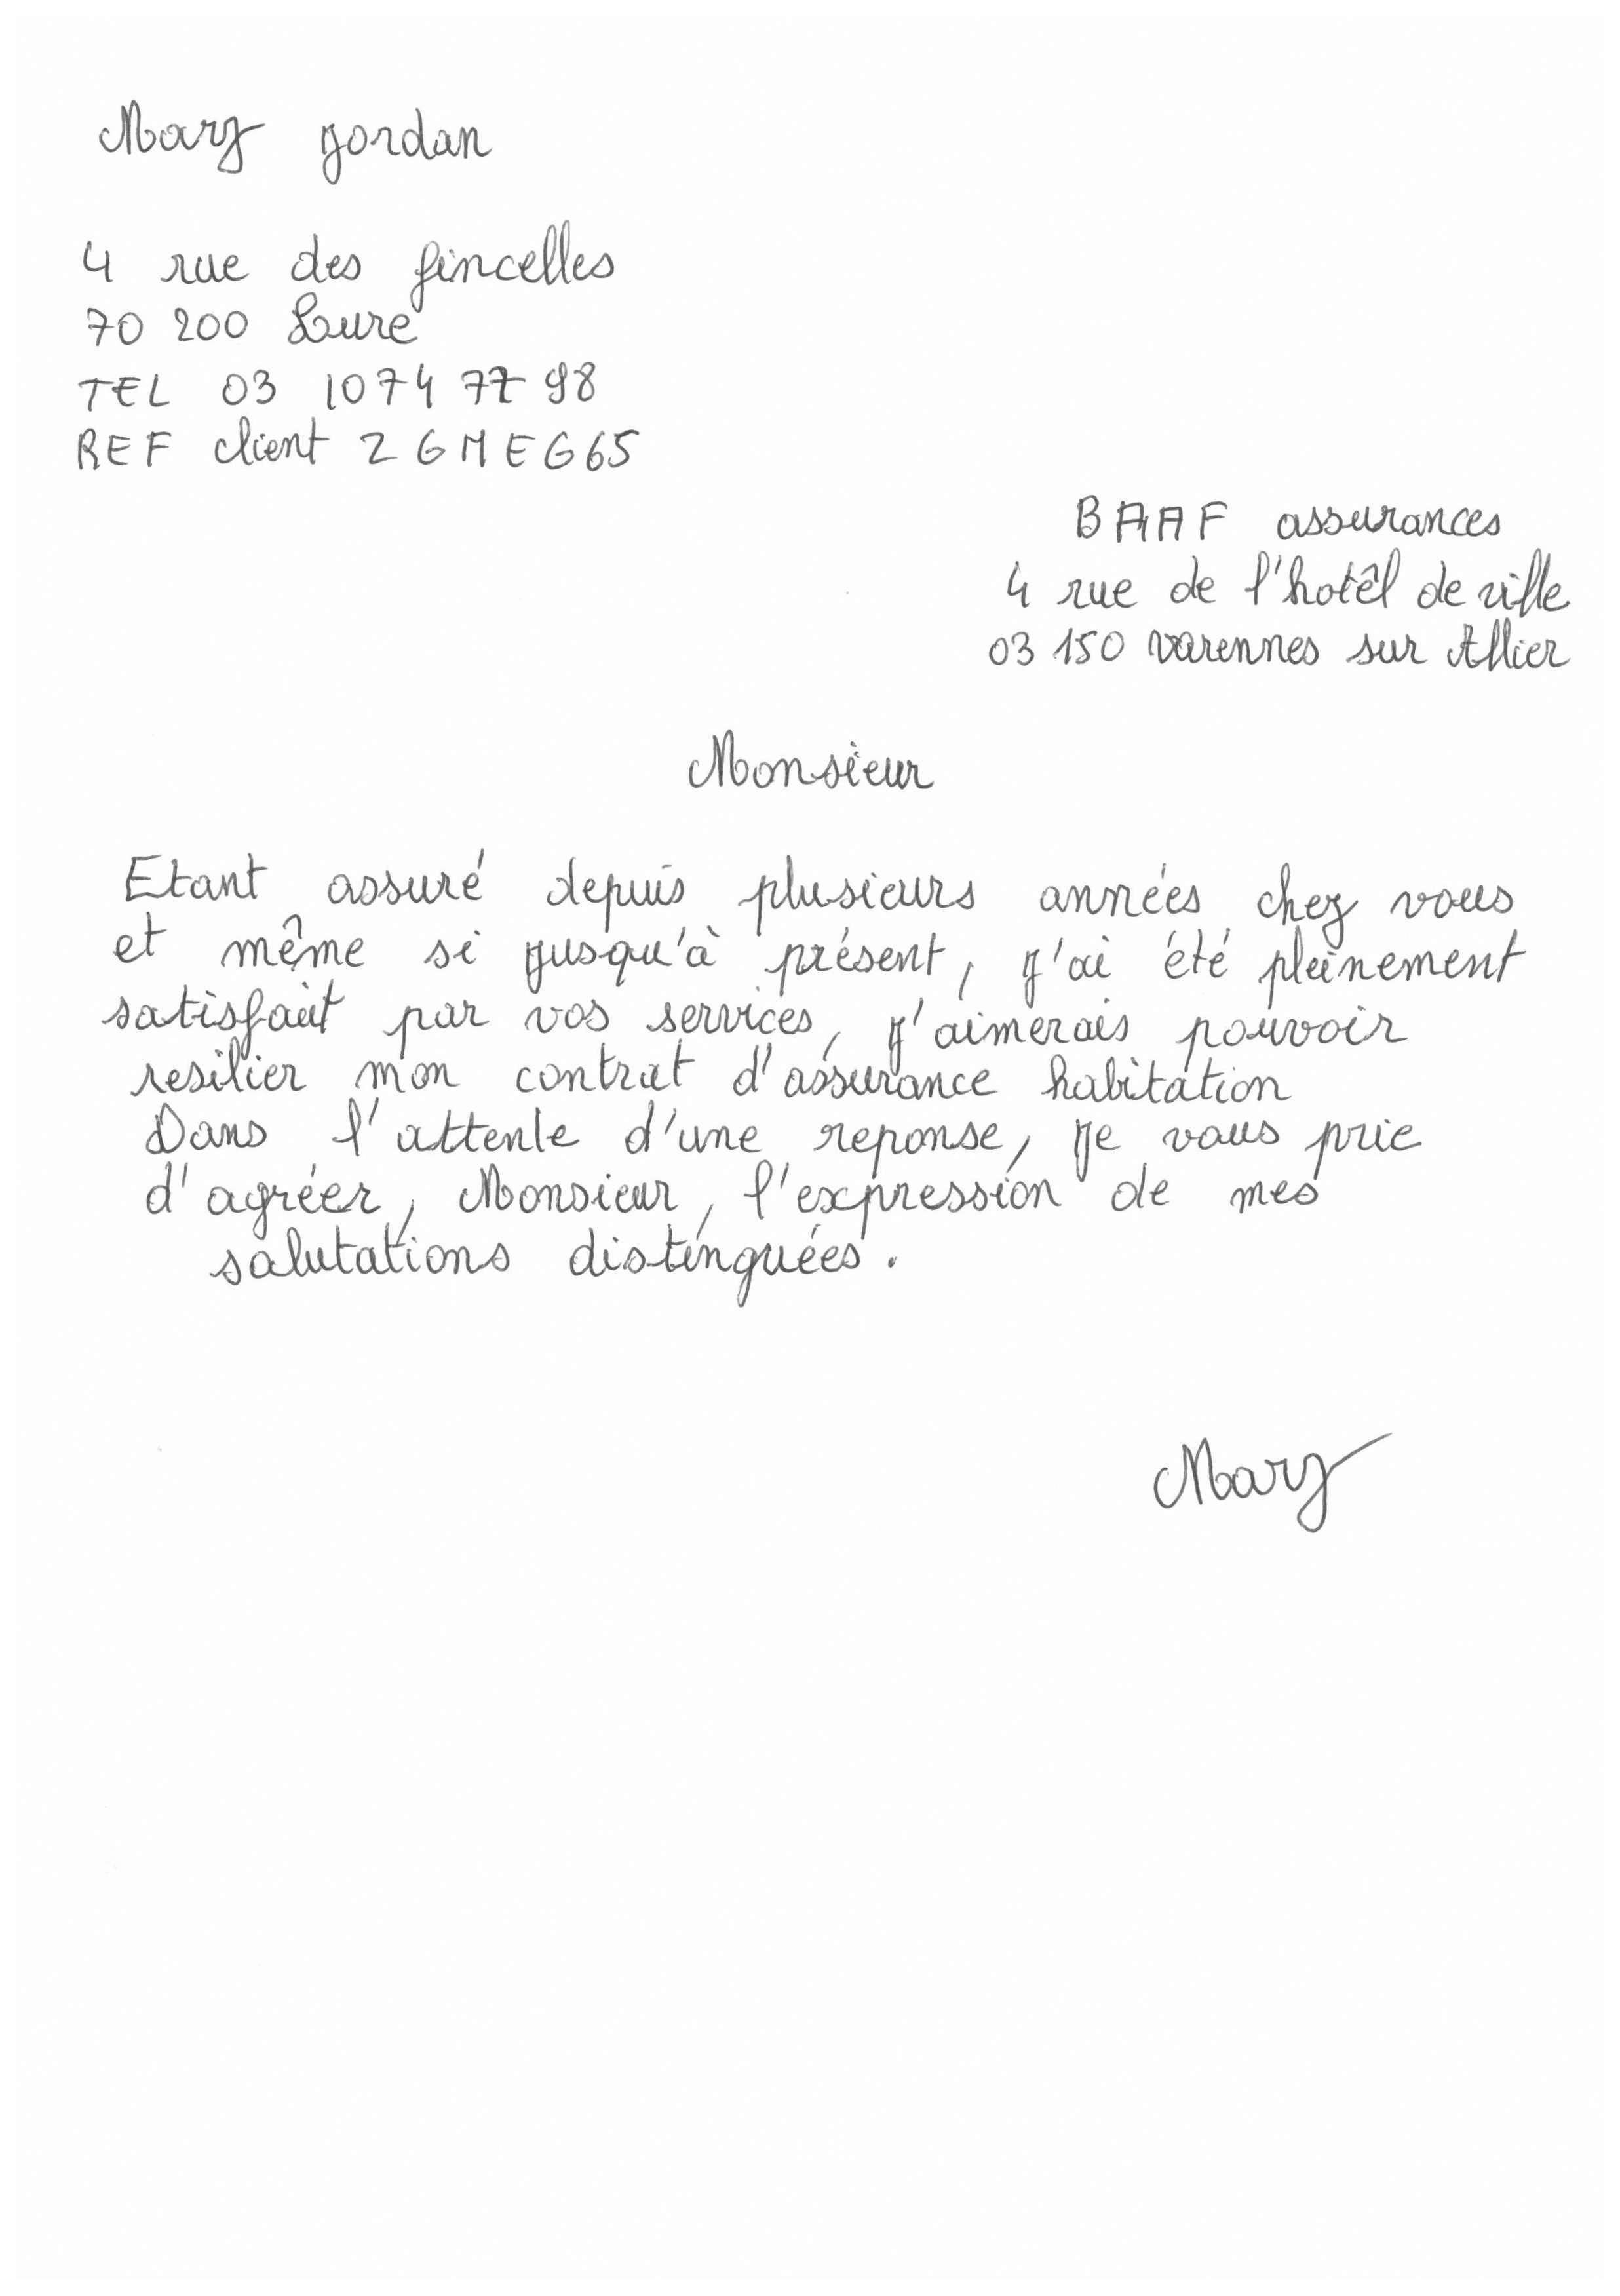 Mary Jordan
4 rue des fincelles
70 200 Lure
TEL 03 10 74 77 98
REF client ZGMEG65
BAAF assurances
4 rue de l'hotêl de ville
03 150 varennes sur Allier
Monsieur
Etant assuré depuis plusieurs années chez vous
et même si jusqu'à présent, j'ai été pleinement
satisfait par vos services, j'aimerais pouvoir
resilier mon contrat d'assurance habitation
Dans l'attente d'une reponse, je vous prie
d'agréer, Monsieur, l'expression de mes
salutations distinguées.
Mary